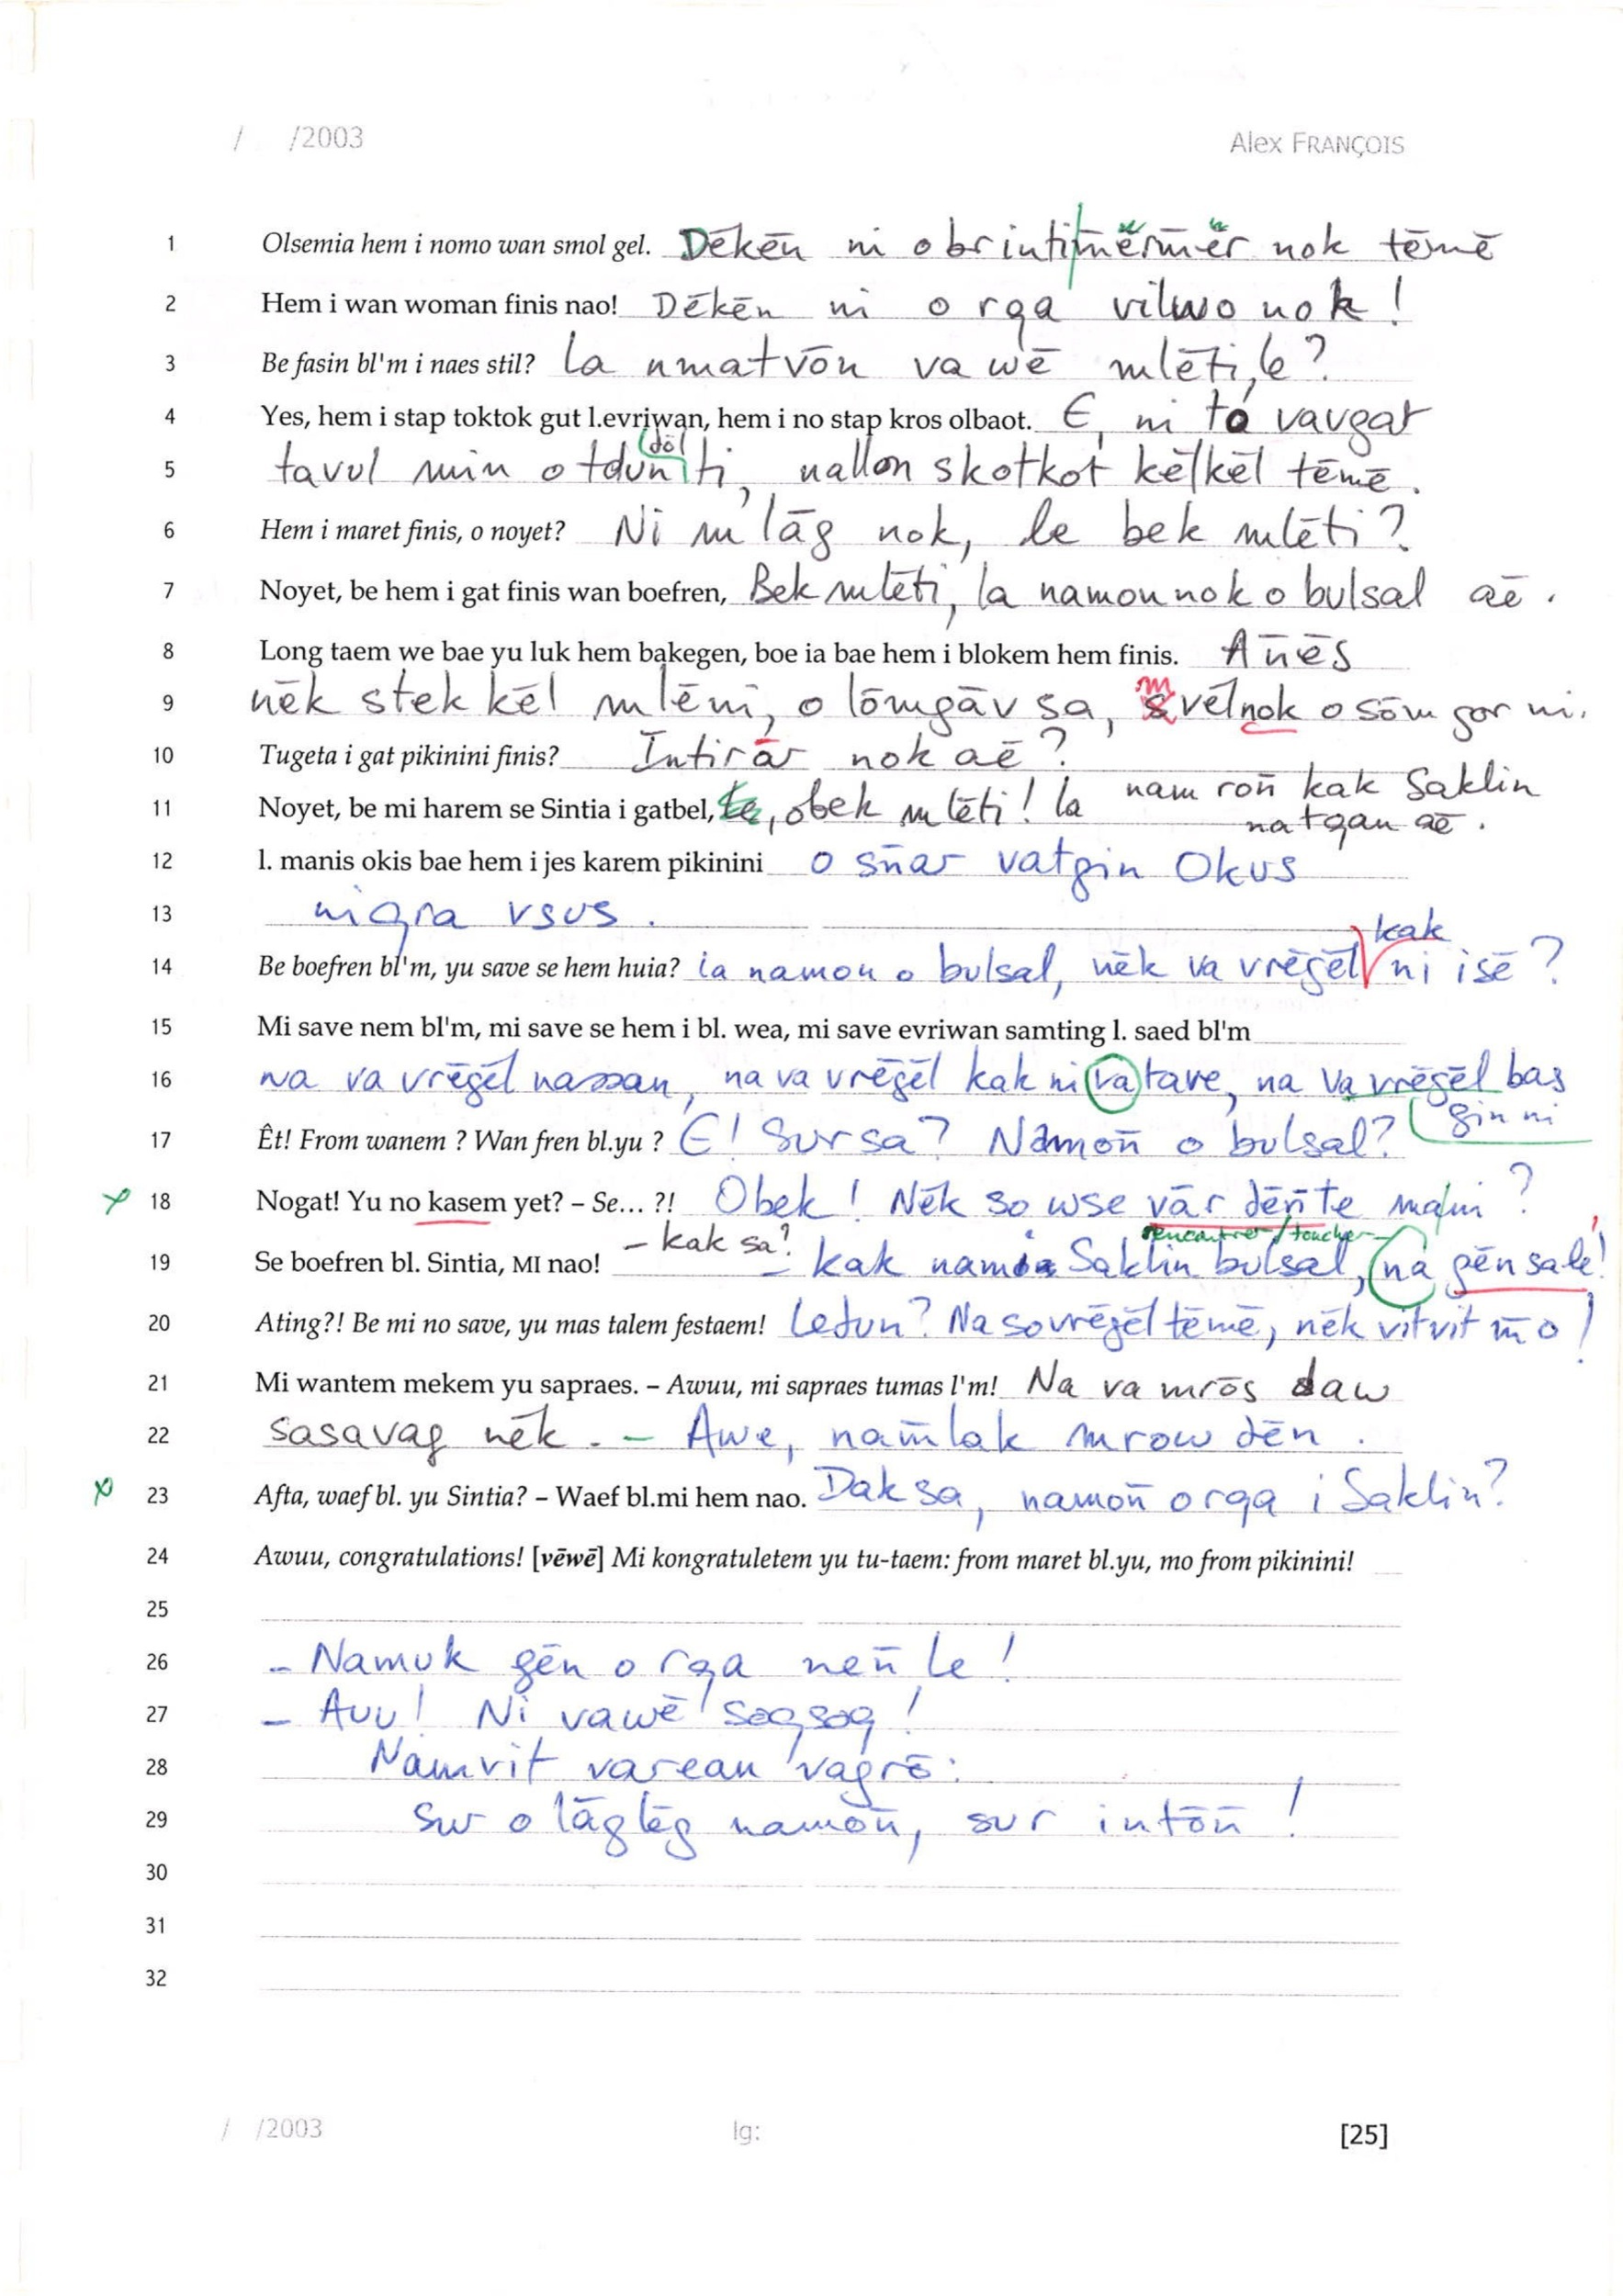 / /2003 Alex FRANÇOIS
1 Olsemia hem i nomo wan smol gel. Dēkēn ni o brintim̄ērm̄ēr nok tēmē
2 Hem i wan woman finis nao! Dēkēn ni o rqa vilwo nok!
3 Be fasin bl'm i naes stil? la nmatvōn va wē mlēti, le?
4 Yes, hem i stap toktok gut l.evriwan, hem i no stap kros olbaot. Є, ni ta vavgat
(döl
5 tavul min o tdun iti, nallon skotkot kēlkēl tēmē.
6 Hem i maret finis, o noyet? Ni m lāg nok, le bek mlēti?
7 Noyet, be hem i gat finis wan boefren, Bek mlēti, la namon nok o bulsal aē.
8 Long taem we bae yu luk hem bakegen, boe ia bae hem i blokem hem finis. Añēs
9 nēk stek kēl mlēni, o lōmgāv sa, mvēlnok o sōm gor ni.
10 Tugeta i gat pikinini finis? Intirār nok aē?
11 Noyet, be mi harem se Sintia i gatbel, obek mlēti! la nam roñ kak Saklin
natqan aē.
12 l. manis okis bae hem i jes karem pikinini o sñar vatgin Okus
13 niqra vsus.
kak
14 Be boefren bl'm, yu save se hem huia? ia namon o bulsal, nēk va vrēgēl ni isē?
15 Mi save nem bl'm, mi save se hem i bl. wea, mi save evriwan samting l. saed bl'm
16 na va vrēgēl nassan, na va vrēgēl kak ni (va) tave, na va vrēgēl bas
gin ni
17 Êt! From wanem ? Wan fren bl.yu ? Є! Sur sa? Namoñ o bulsal?
18 Nogat! Yu no kasem yet? – Se... ?! Obek! Nēk so wse vār dēñ te mahi?
rencontrer / toucher
19 Se boefren bl. Sintia, MI nao! – kak sa? – kak namia Saklin bulsal, (na gēn sale!
20 Ating?! Be mi no save, yu mas talem festaem! Letun? Na so vrēgēl tēmē, nēk vitvit m̄o!
21 Mi wantem mekem yu sapraes. – Awuu, mi sapraes tumas l'm! Na va mrōs daw
22 sasavag nēk. – Awe, nam̄lak mrow dēn.
23 Afta, waef bl. yu Sintia? – Waef bl.mi hem nao. Dak sa, namoñ o rqa i Saklin?
24 Awuu, congratulations! [vēwē] Mi kongratuletem yu tu-taem: from maret bl.yu, mo from pikinini!
25
26 – Namuk gēn o rqa neñ le!
27 – Auu! Ni vawē soqsoq!
28 Namvit varean vagrō:
29 sur o lāglāg namoñ, sur intōñ!
30
31
32
/ /2003 lg: [25]